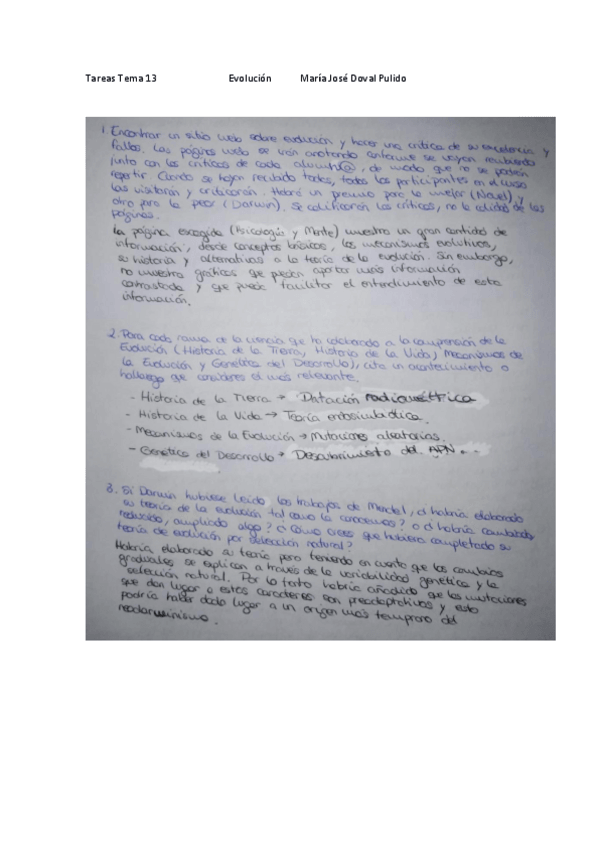 Tareas Tema 13 Evolución María José Doval Pulido
1. Encontrar un sitio web sobre evolución y hacer una crítica de su excelencia y
fallos. Las páginas web se irán anotando conforme se vayan recibiendo
junto con las críticas de cada alumn@, de modo que no se podrán
repetir. Cuando se hayan recibido todas, todos los participantes en el curso
las visitarán y criticarán. Habrá un premio para la mejor (Novel) y
otro para la peor (Darwin). Se calificarán las críticas, no la calidad de las
páginas.
La página escogida (Psicología y Mente) muestra un gran cantidad de
información, desde conceptos básicos, los mecanismos evolutivos,
su historia y alternativas a la teoría de la evolución. Sin embargo,
no muestra gráficas que puedan aportar más información
contrastada y que pueda facilitar el entendimiento de esta
información.
2. Para cada rama de la ciencia que ha colaborado a la comprensión de la
Evolución (Historia de la Tierra, Historia de la Vida, Mecanismos de
la Evolución y Genética del Desarrollo), cita un acontecimiento o
hallazgo que consideres el más relevante.
- Historia de la Tierra → Datación radiométrica
- Historia de la Vida → Teoría endosimbiótica.
- Mecanismos de la Evolución → Mutaciones aleatorias.
- Genética del Desarrollo → Descubrimiento del ARN.
3. Si Darwin hubiese leído los trabajos de Mendel, ¿habría elaborado
su teoría de la evolución tal como la conocemos? o ¿habría cambiado,
reducido, ampliado algo? ¿Cómo crees que hubiera completado su
teoría de evolución por selección natural?
Habría elaborado su teoría pero teniendo en cuenta que los cambios
graduales se explican a través de la variabilidad genética y la
selección natural. Por lo tanto habría añadido que las mutaciones
que dan lugar a estos caracteres son preadaptativas y esto
podría haber dado lugar a un origen más temprano del
neodarwinismo.